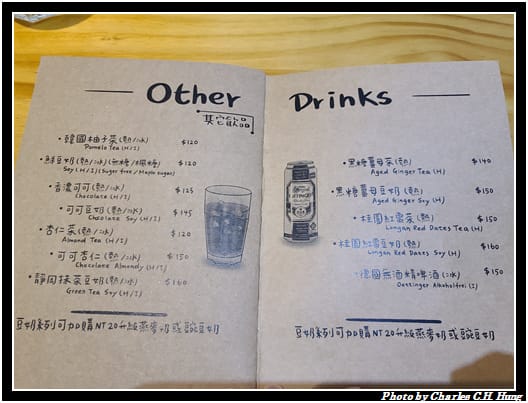 Other Drinks
其它飲品
・韓國柚子茶(熱/冰) $120
Pomelo Tea (H/I)
・鮮豆奶(熱/冰)(無糖/楓糖) $120
Soy (H/I)(Sugar free / Maple sugar)
・香濃可可(熱/冰) $125
Chocolate (H/I)
・可可豆奶(熱/冰) $145
Chocolate Soy (H/I)
・杏仁茶(熱/冰) $120
Almond Tea (H/I)
・可可杏仁(熱/冰) $150
Chocolate Almondy (H/I)
・靜岡抹茶豆奶(熱/冰) $160
Green Tea Soy (H/I)
豆奶系列可加購NT20升級燕麥奶或豌豆奶
・黑糖薑母茶(熱) $140
Aged Ginger Tea (H)
・黑糖薑母豆奶(熱) $150
Aged Ginger Soy (H)
・桂圓紅棗茶(熱) $150
Longan Red Dates Tea (H)
・桂圓紅棗豆奶(熱) $160
Longan Red Dates Soy (H)
・德國無酒精啤酒(冰) $150
Oettinger Alkoholfrei (I)
豆奶系列可加購NT20升級燕麥奶或豌豆奶
Photo by Charles C.H. Hung